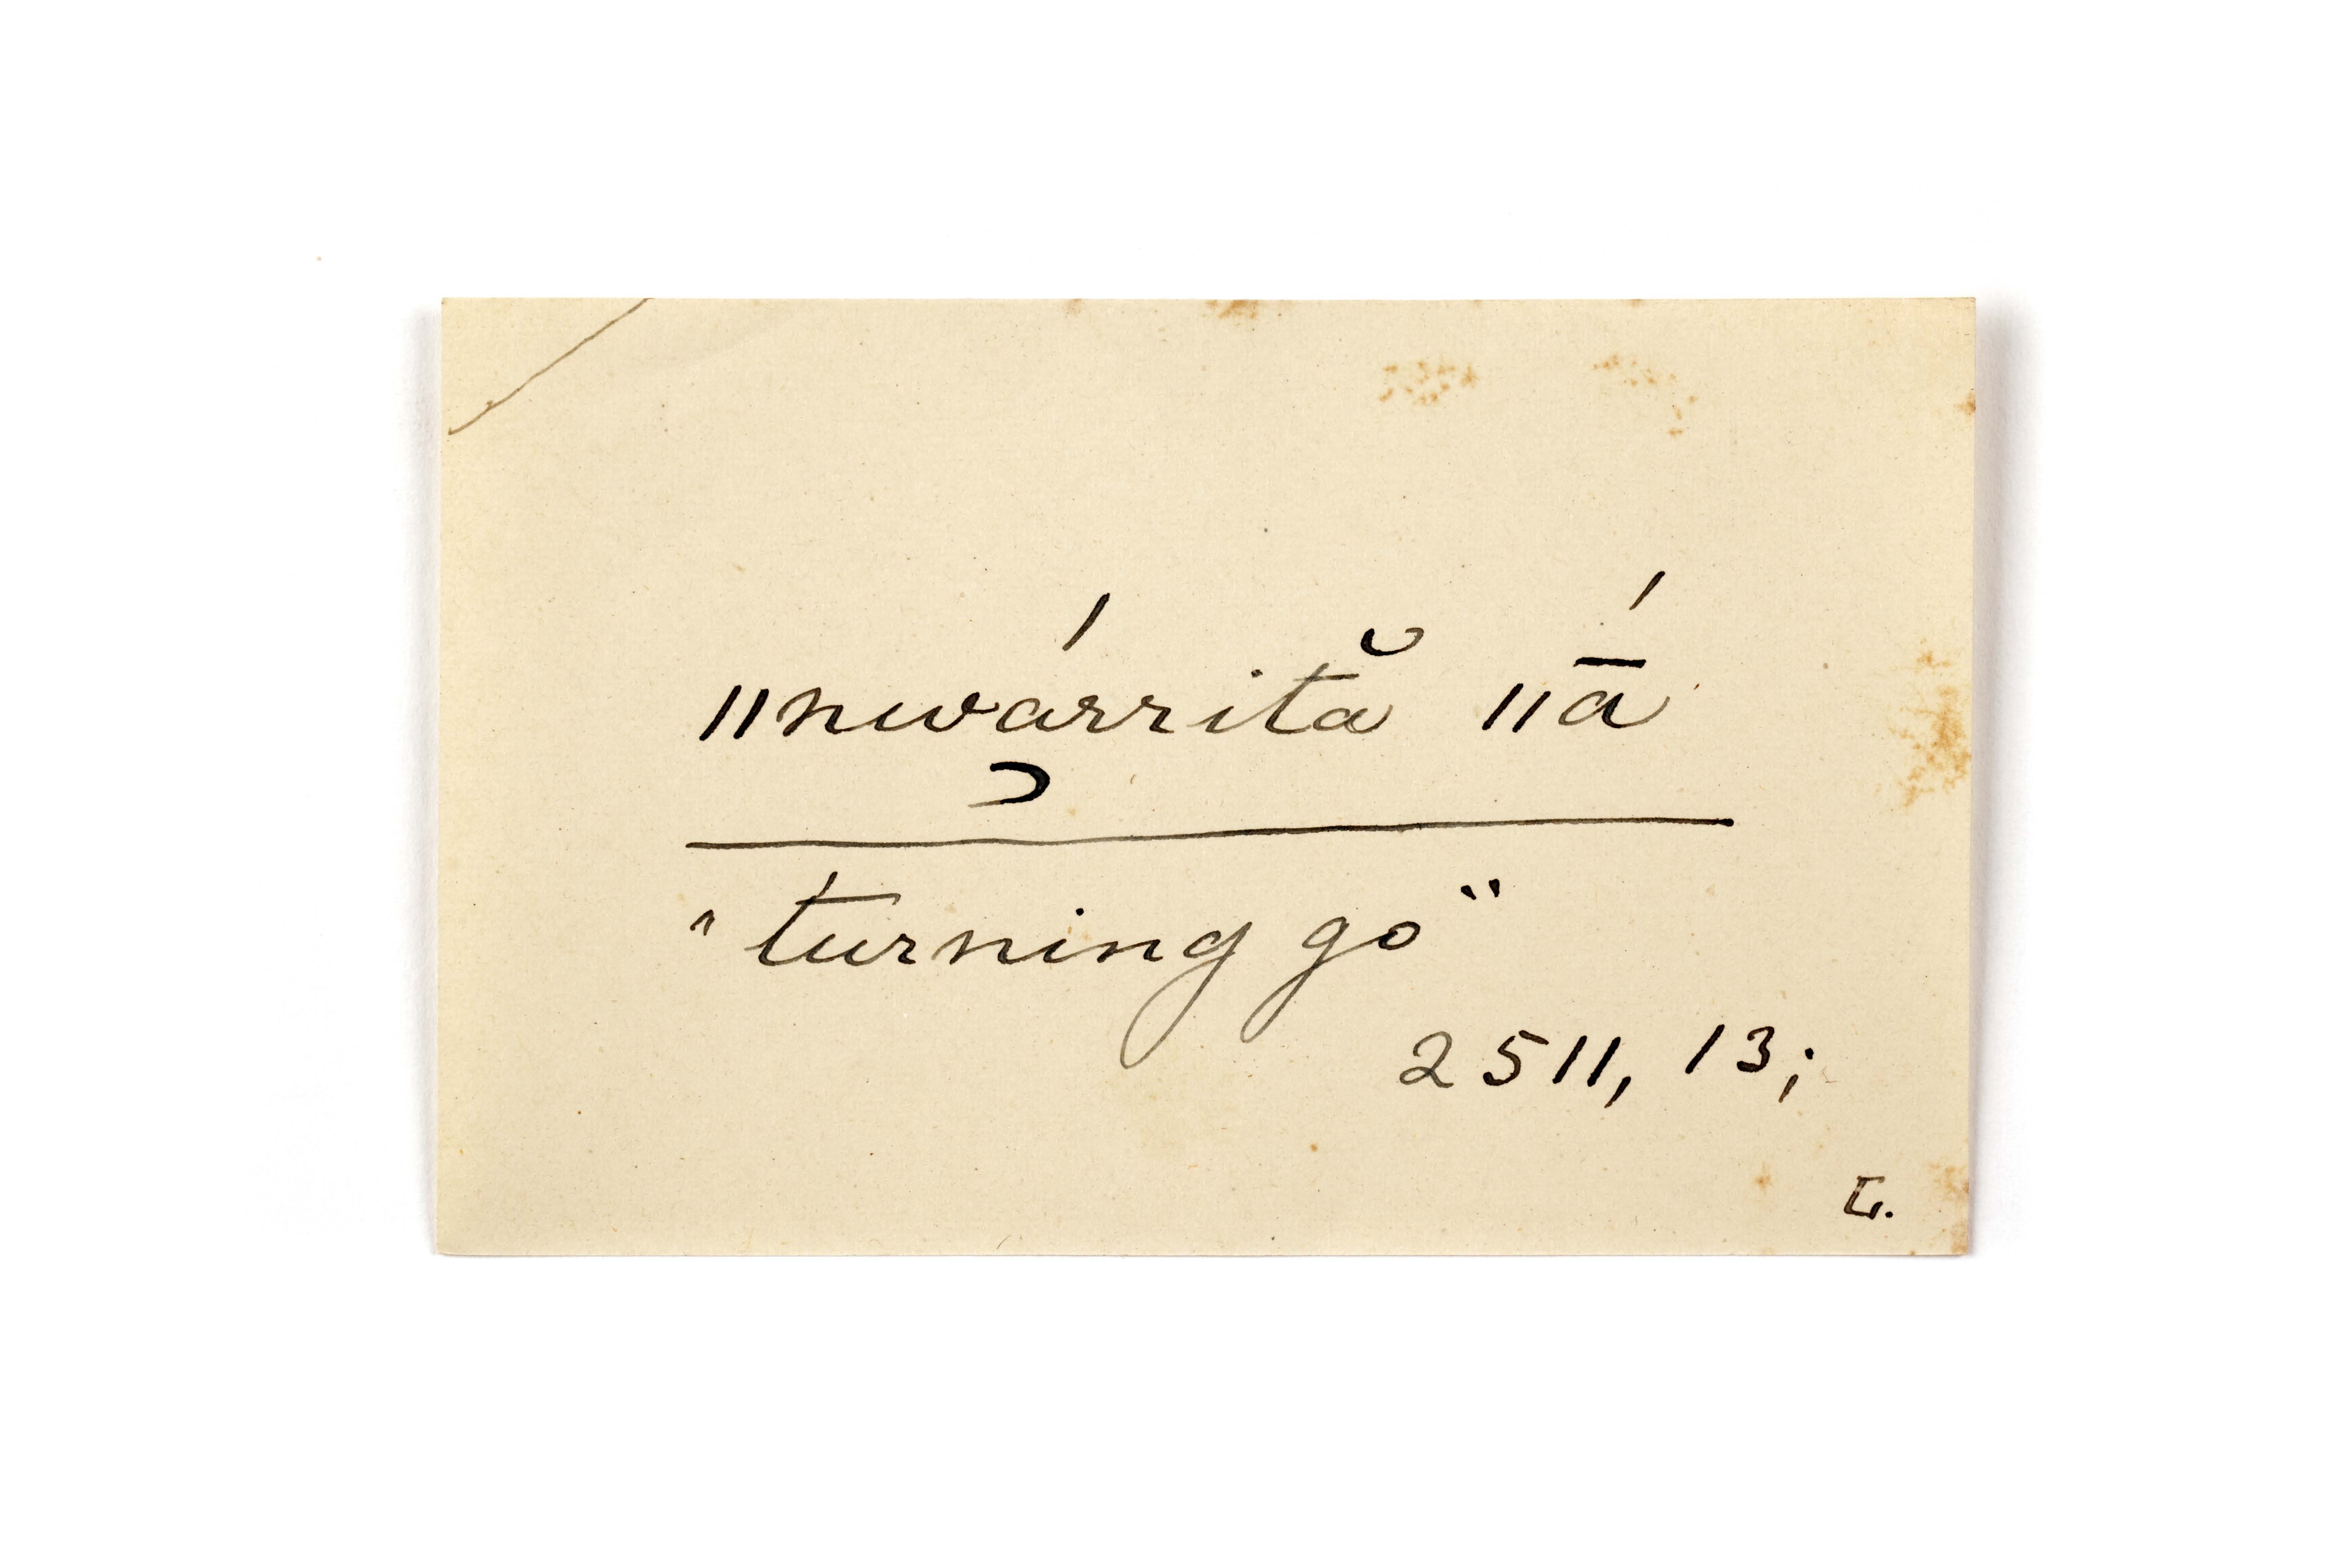 ǁnwa̮árrită ǁā́
"turning go"
2511, 13;
L.